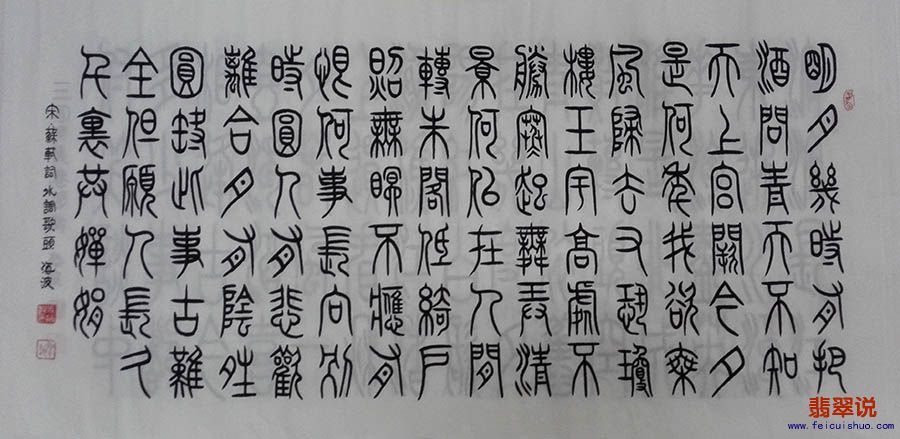 明月幾時有把
酒問青天不知
天上宮闕今夕
是何年我欲乘
風歸去又恐瓊
樓玉宇高處不
勝寒起舞弄清
景何似在人間
轉朱閣低綺戶
照無眠不應有
恨何事長向別
時圓人有悲歡
離合月有陰晴
圓缺此事古難
全但願人長久
千裏共嬋娟
宋·蘇軾詞水調歌頭 海波
翡翠说
www.feicuishuo.com